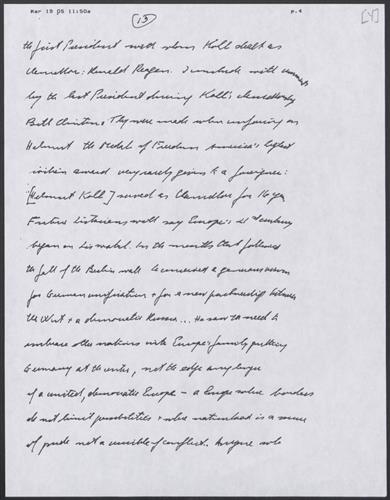 Mar 19 05 11:50a p.4
13
the first President with whom Kohl dealt as
Chancellor: Ronald Reagan. I conclude with comments
by the last President during Kohl's chancellorship
Bill Clinton. They were made when conferring on
Helmut the Medal of Freedom America's highest
civilian award very rarely given to a foreigner:
[Helmut Kohl] served as Chancellor for 16 yrs
Future historians will say Europe's 21st century
began on his watch. In the months that followed
the fall of the Berlin wall he conceived a generous vision
for German unification + for a new partnership between
the West + a democratic Russia... He saw the need to
embrace other nations into Europe's family putting
Germany at the center, not the edge any longer
of a united, democratic Europe – a Europe where borders
do not limit possibilities + where nationhood is a source
of pride not a crucible of conflict. Anyone who